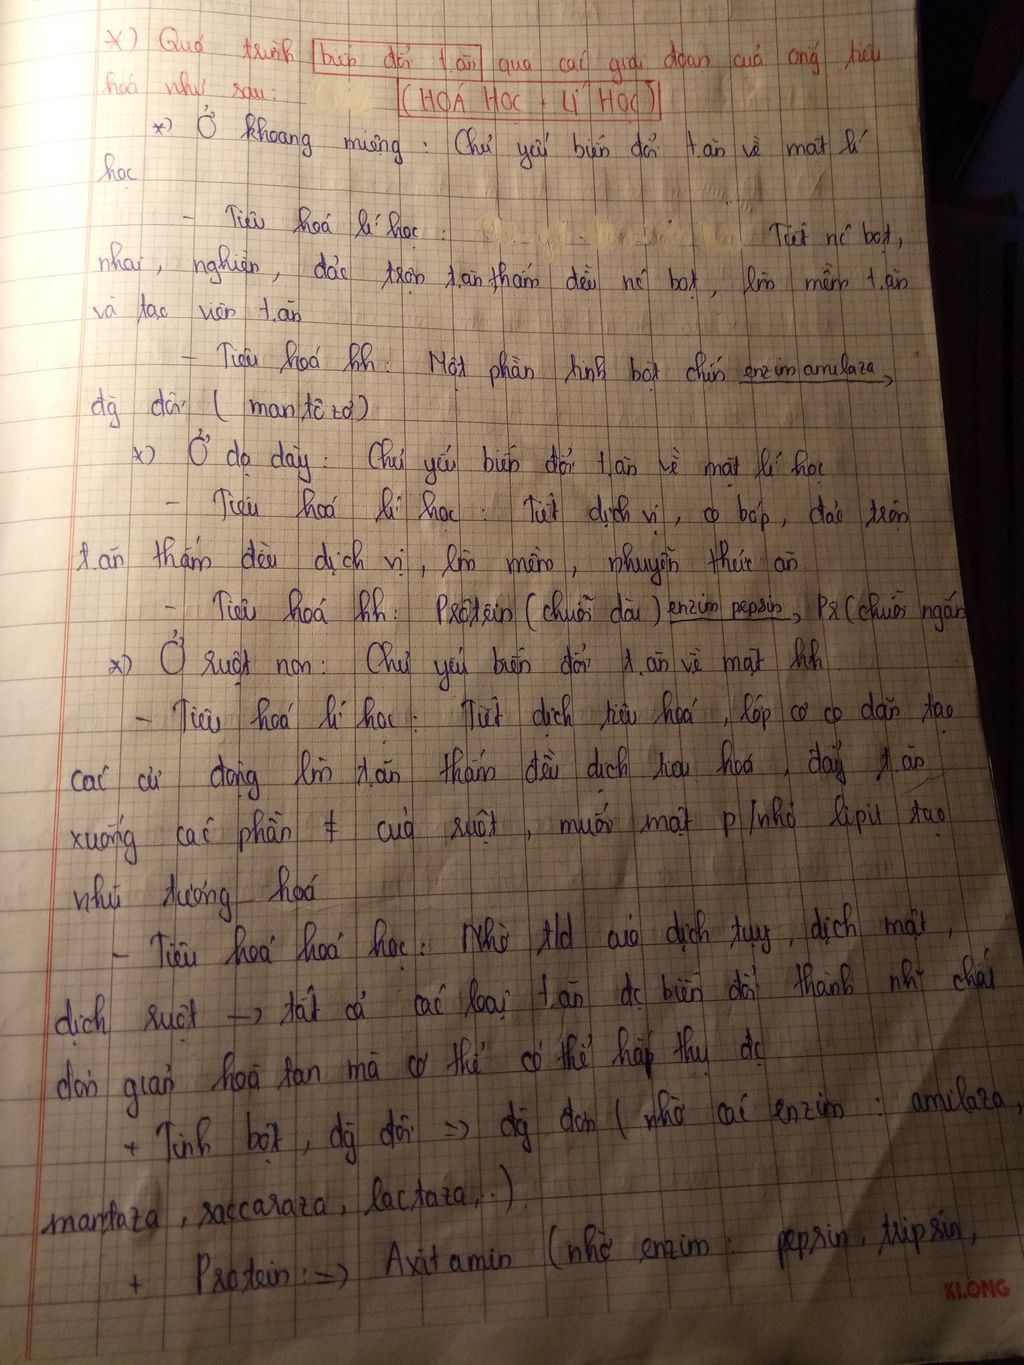 *) Quá trình biến đổi t.ăn qua các giai đoạn của ống tiêu
hoá như sau: (HOÁ HỌC + LÍ HỌC)
*) Ở khoang miệng: Chủ yếu biến đổi t.ăn về mặt lí
học
- Tiêu hoá lí học: Tiết nc bọt,
nhai, nghiền, đảo trộn t.ăn thấm đều nc bọt, làm mềm t.ăn
và tạo viên t.ăn
- Tiêu hoá hh: Một phần tinh bột chín enzim amilaza
đg đôi (mantôzơ)
*) Ở dạ dày: Chủ yếu biến đổi t.ăn về mặt lí học
- Tiêu hoá lí học: Tiết dịch vị, co bóp, đảo trộn
t.ăn thấm đều dịch vị, làm mềm, nhuyễn thức ăn.
- Tiêu hoá hh: Prôtêin (chuỗi dài) enzim pepsin Pr (chuỗi ngắn
*) Ở ruột non: Chủ yếu biến đổi t.ăn về mặt hh
- Tiêu hoá lí học: Tiết dịch tiêu hoá, lớp cơ co dãn tạo
các cử động làm t.ăn thấm đều dịch tiêu hoá, đẩy t.ăn
xuống các phần ≠ của ruột, muối mật p/nhỏ lipit tạo
nhũ tương hoá
- Tiêu hoá hoá học: Nhờ t/d của dịch tụy, dịch mật,
dịch ruột → tất cả các loại t.ăn đc biến đổi thành nh~ chất
đơn giản hoà tan mà cơ thể có thể hấp thụ đc
+ Tinh bột, đg đôi => đg đơn (nhờ các enzim: amilaza,
mantaza, saccaraza, lactaza,..)
+ Protein: => Axitamin (nhờ enzim: pepsin, tripsin,
KLONG